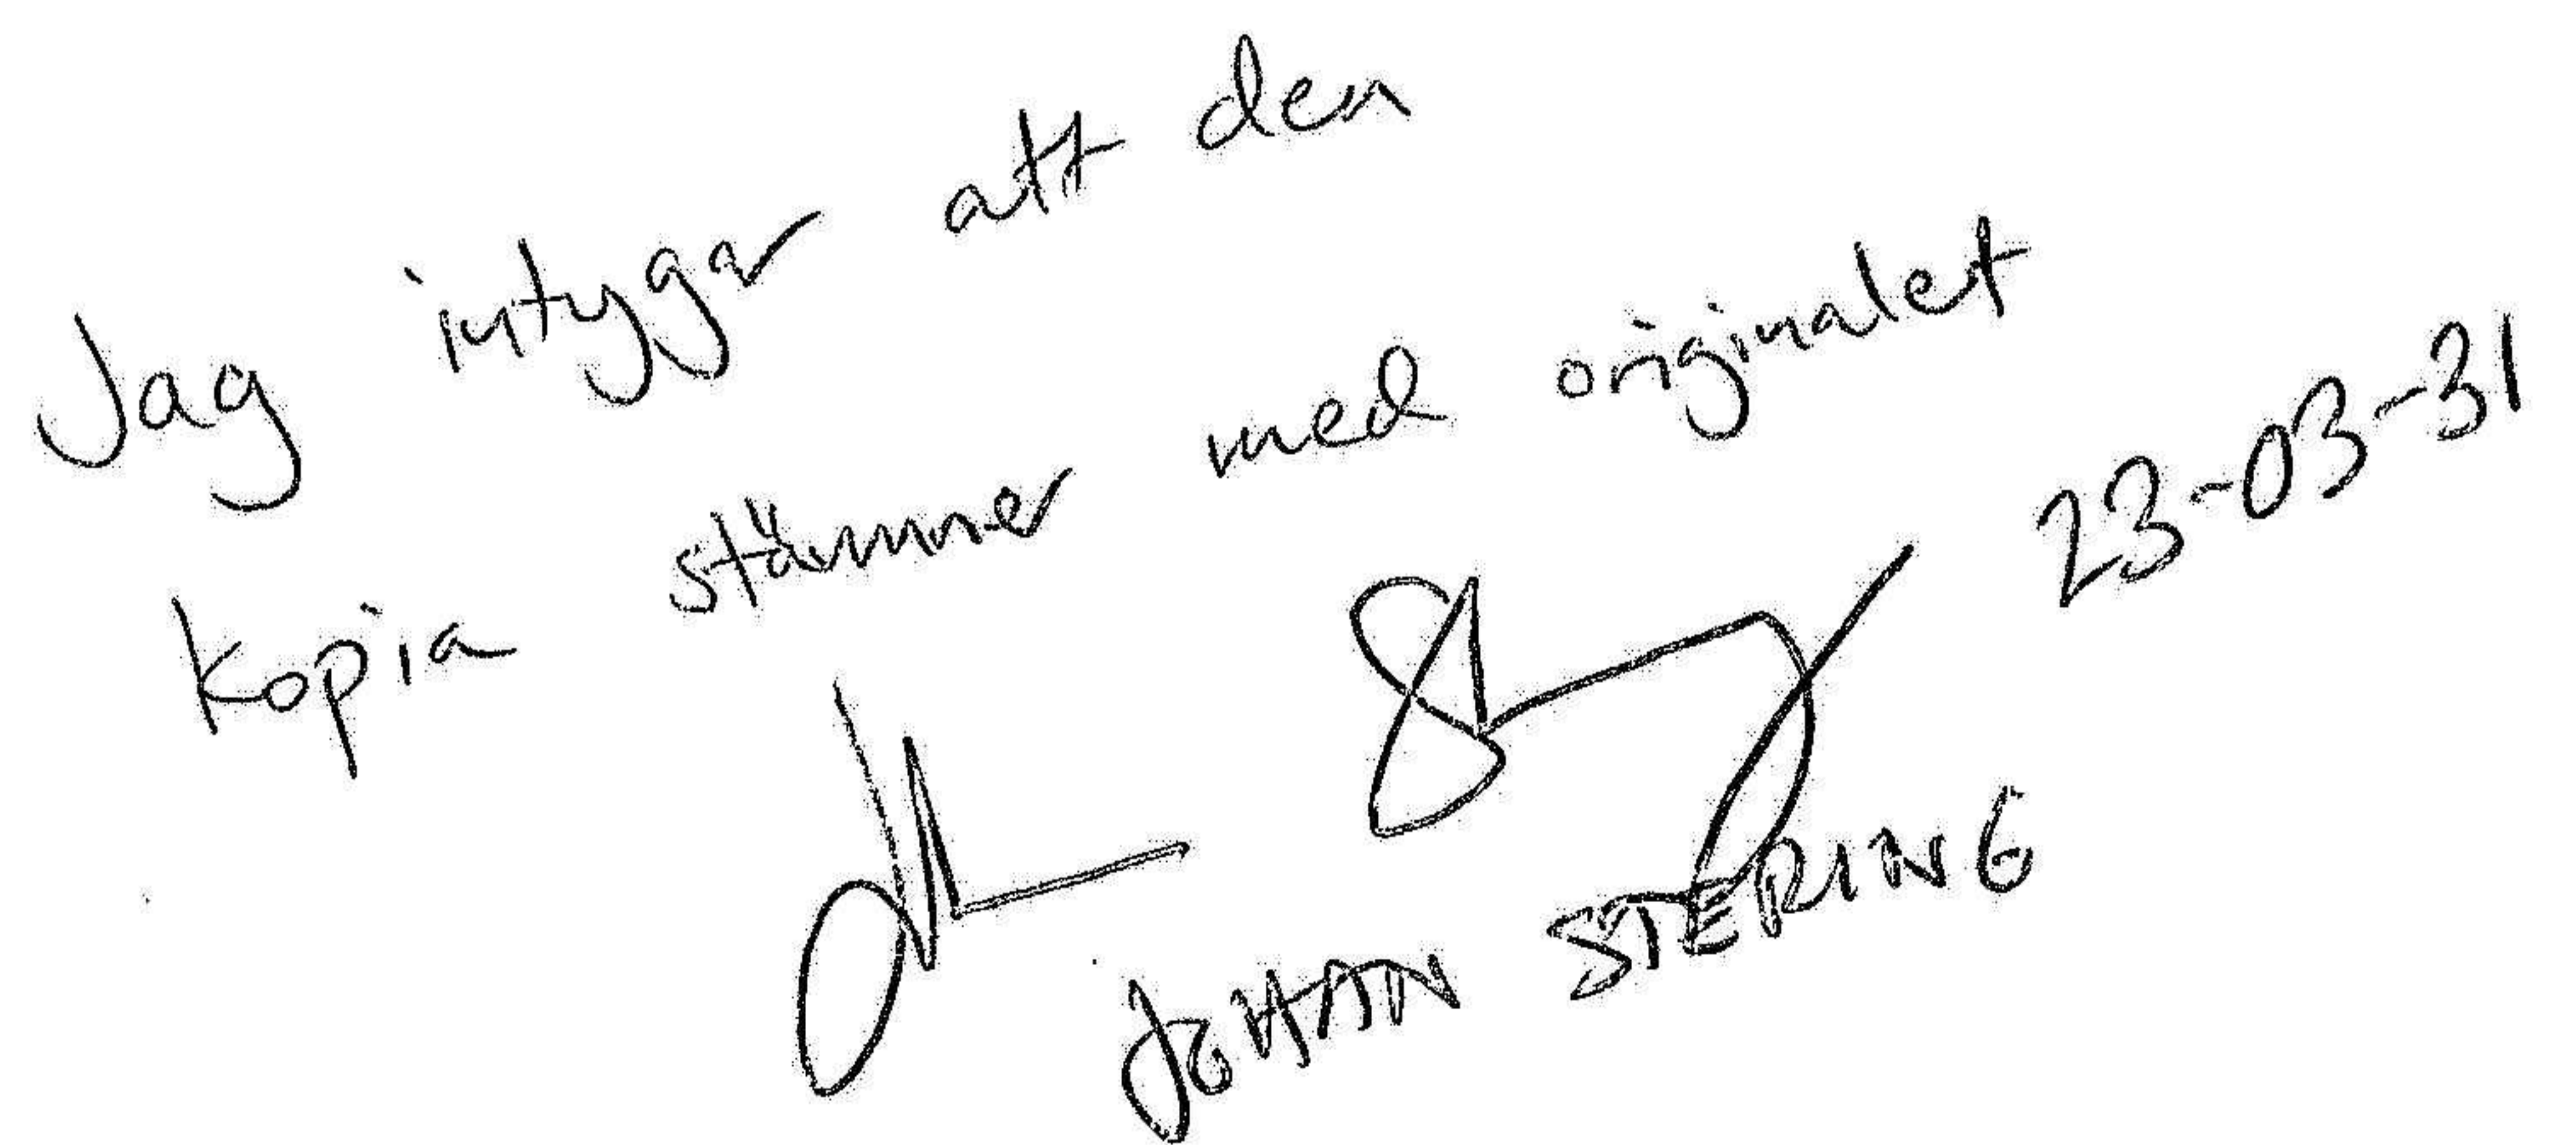 Jag intygar att den
kopia stämmer med originalet
23-03-31
JOHAN STERING